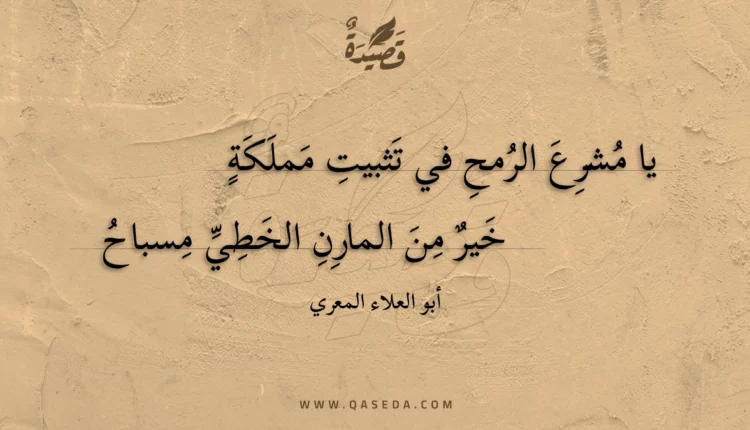 قَصِيدَةٌ
يا مُشرِعَ الرُمحِ في تَثبيتِ مَملَكَةٍ
خَيرٌ مِنَ المارِنِ الخَطِيِّ مِسباحُ
أبو العلاء المعري
WWW.QASEDA.COM